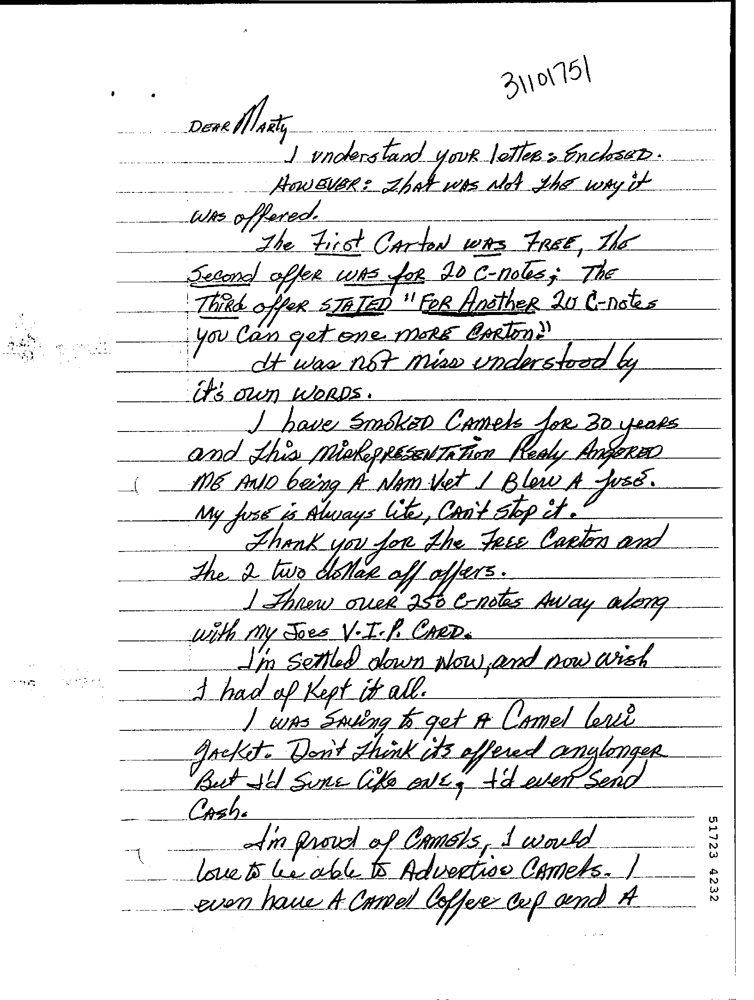 31101751
DEAR MARTY
I understand YOUR letter: EnclosED.
HOWEVER: That WAS Not The WAY it
WAS offered.
The First CArtoN WAS FREE, The
Second offer WAS for 20 C-notes; The
Third offer STATED "FOR Another 20 C-notes
you Can get one more CARTON!"
It was not miss understood by
it's own WORDS.
I have SMOKED CAMels for 30 years
and This MisRepRESENTATion Realy AngeRED
ME AND being A NAM Vet I Blew A fuse.
My fuse is Always lite, CAN't stop it.
THANK you for The FREE CARton and
The 2 two dollar off offers.
I Threw over 250 C-notes AWAY along
with my Joes V.I.P. CARD.
I'm Settled down Now, and now wish
I had of Kept it all.
I WAS SAVing to get A CAMel levi
JACKet. Don't Think it's offered anylonger
But I'd SURE like ONE, I'd even Send
CASh.
I'm proud of CAMels, I would
love to be able to Advertise CAMels. I
even have A CAMel Coffee cup and A
51723 4232